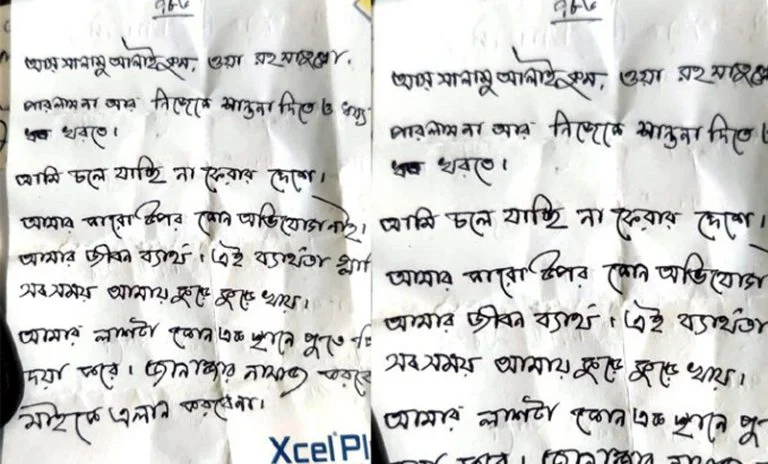 ৭৮৬
আস সালামু আলাইকুম, ওয়া রহমাতুল্লা.
পারলাম না আর নিজেকে শান্তনা দিতে ও ধয্য
ধরতে।
আমি চলে যাচ্ছি না ফেরার দেশে।
আমার কারো উপর কোন অভিযোগ নাই।
আমার জীবন ব্যার্থ। এই ব্যার্থতা
সব সময় আমায় কুড়ে কুড়ে খায়।
আমার লাশটা কোন এক স্থানে পুতে
দয়া করে। জানাজার নামাজ করবে
মাইকে এলান করবেনা।
Xcel Pl
৭৮৬
আস সালামু আলাইকুম, ওয়া রহমাতুল্লা
পারলাম না আর নিজেকে শান্তনা দিতে
ধরতে।
আমি চলে যাচ্ছি না ফেরার দেশে।
আমার কারো উপর কোন অভিযোগ
আমার জীবন ব্যার্থ। এই ব্যার্থতা
সব সময় আমায় কুড়ে কুড়ে খায়।
আমার লাশটা কোন এক স্থানে পু